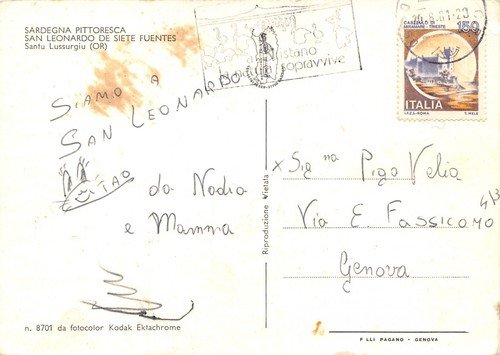 SARDEGNA PITTORESCA
SAN LEONARDO DE SIETE FUENTES
Santu Lussurgiu (OR)
SIAMO A
SAN LEONARDO
CIAO
da Nadia
e Mamma
n. 8701 da fotocolor Kodak Ektachrome
Riproduzione Vietata
sopravvive
CASTELLO DI
MIRAMARE - TRIESTE
150
ITALIA
I.P.Z.S.-ROMA
T. MELE
x Sig na Piga Velia
Via E. Fassicomo 4/3
Genova
F.LLI PAGANO - GENOVA